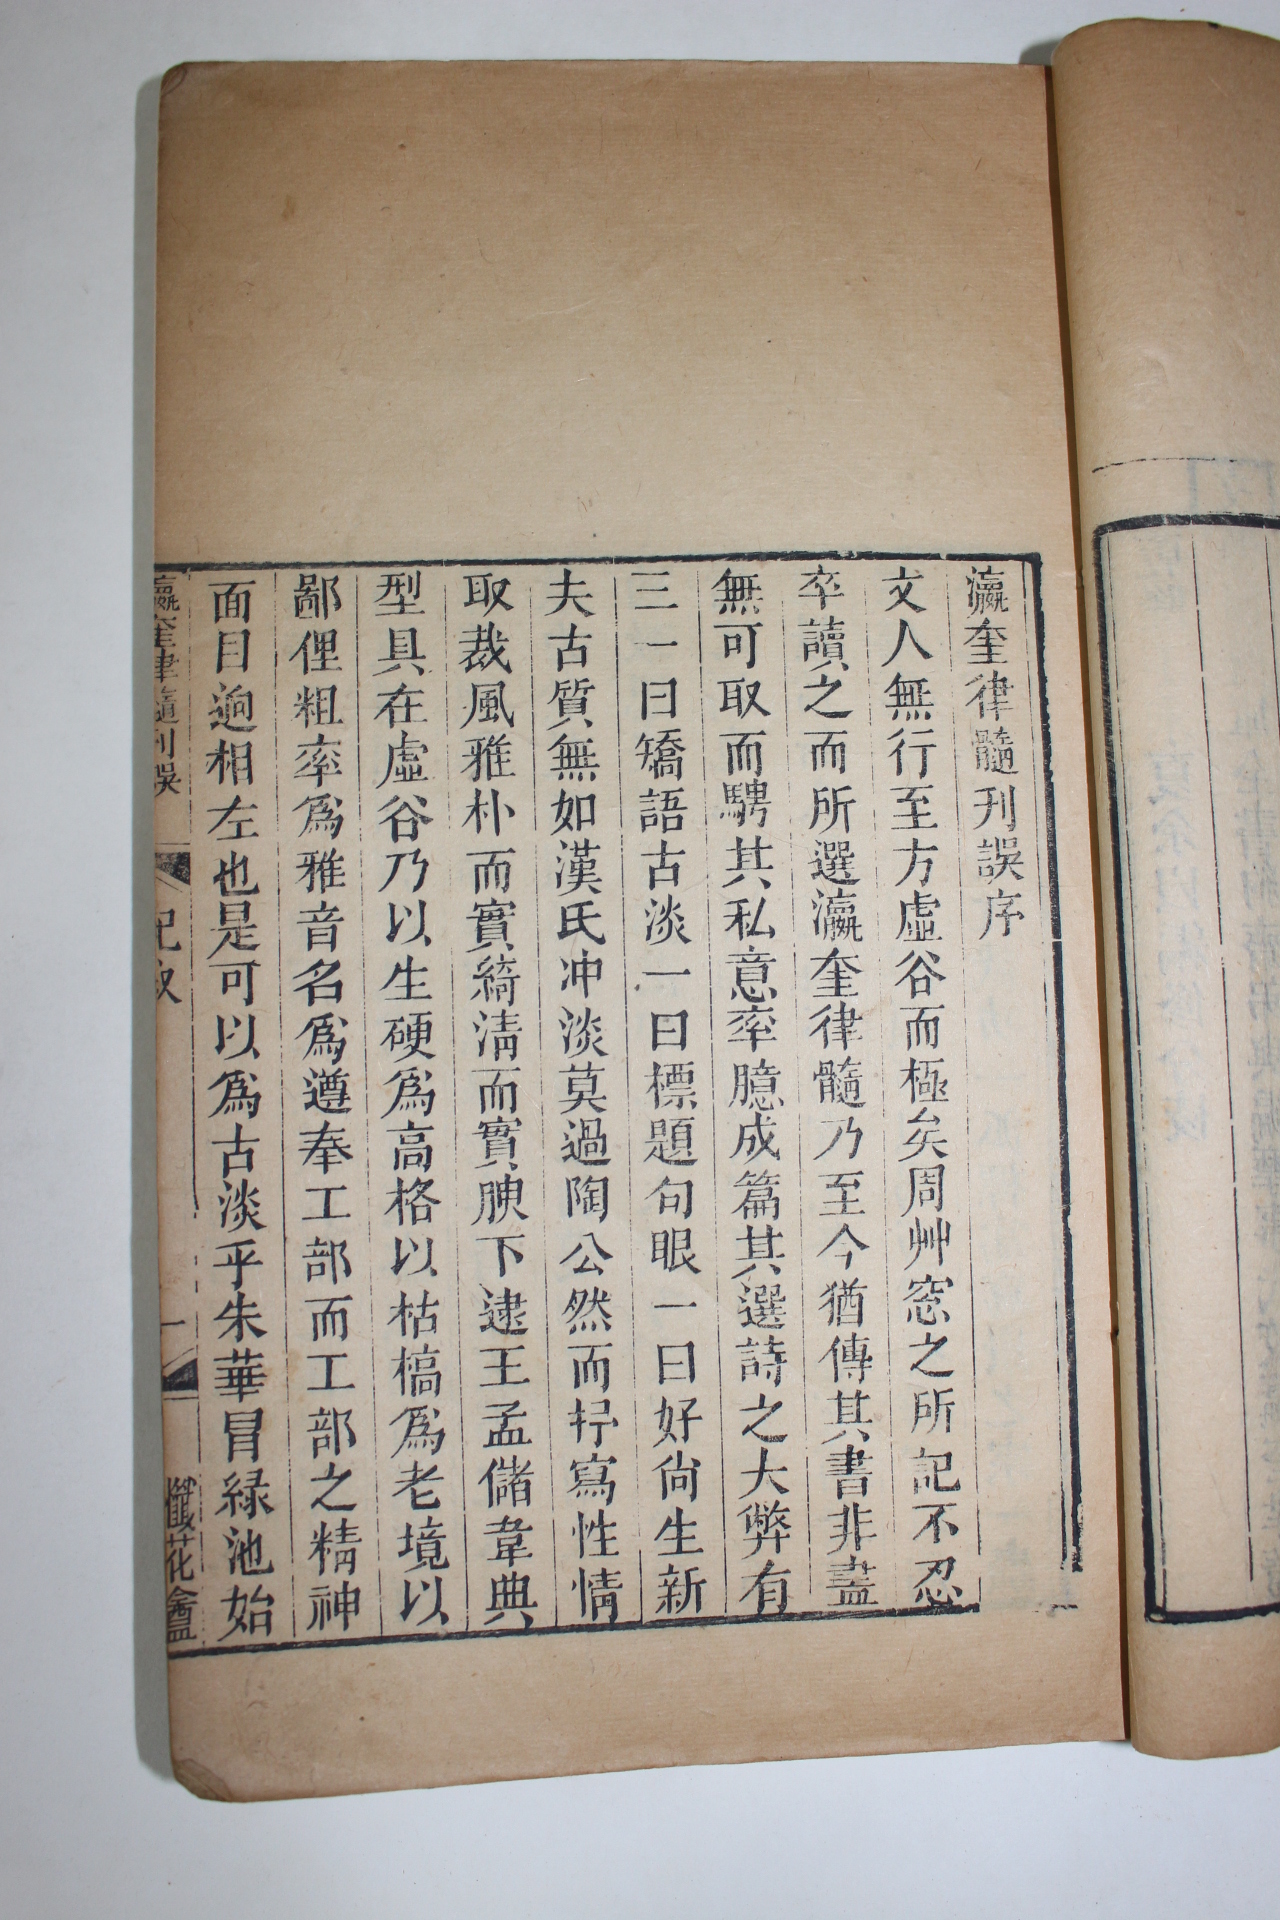 瀛奎律髓刋誤序
文人無行至方虛谷而極矣周艸窓之所記不忍
卒讀之而所選瀛奎律髓乃至今猶傳其書非盡
無可取而騁其私意率臆成篇其選詩之大弊有
三一曰矯語古淡一曰標題句眼一曰好尙生新
夫古質無如漢氏冲淡莫過陶公然而抒寫性情
取裁風雅朴而實綺淸而實腴下逮王孟儲韋典
型具在虛谷乃以生硬爲高格以枯槁爲老境以
鄙俚粗率爲雅音名爲遵奉工部而工部之精神
面目逈相左也是可以爲古淡乎朱華冒緑池始
瀛奎律髓刋誤
紀敘
一
懺花盦